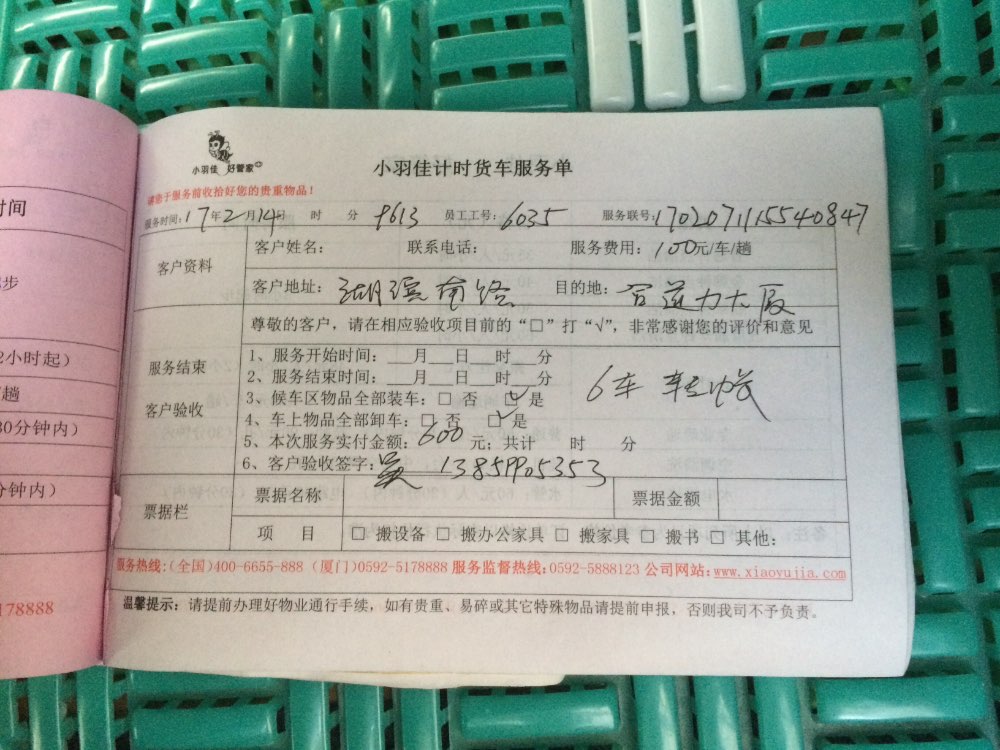 小羽佳 好管家
小羽佳计时货车服务单
请您于服务前收拾好您的贵重物品！
服务时间：17年2月14日 时 分 9613 员工工号：6035 服务联号：1702071115540847
客户资料
客户姓名： 联系电话： 服务费用：100元/车/趟
客户地址：湖滨南路 目的地：大厦
服务结束
客户验收
尊敬的客户，请在相应验收项目前的“□”打“√”，非常感谢您的评价和意见
1、服务开始时间：___月___日___时___分
2、服务结束时间：___月___日___时___分
6车
3、候车区物品全部装车：□ 否 □ 是
4、车上物品全部卸车：□ 否 □ 是
5、本次服务实付金额：600元；共计 时 分
6、客户验收签字：吴
票据栏
票据名称 票据金额
项 目 □ 搬设备 □ 搬办公家具 □ 搬家具 □ 搬书 □ 其他：
服务热线：(全国)400-6655-888 (厦门)0592-5178888 服务监督热线：0592-5888123 公司网站：www.xiaoyujia.com
温馨提示：请提前办理好物业通行手续，如有贵重、易碎或其它特殊物品请提前申报，否则我司不予负责。
时间
步
2小时起）
趟
30分钟内）
分钟内）
178888